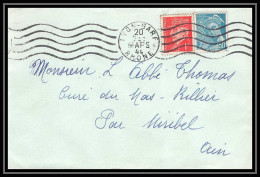 LYON-GARE
20
MARS
44
RHONE
Monsieur L'Abbé Thomas
Curé du Mas-Rillier
Par Miribel
Ain